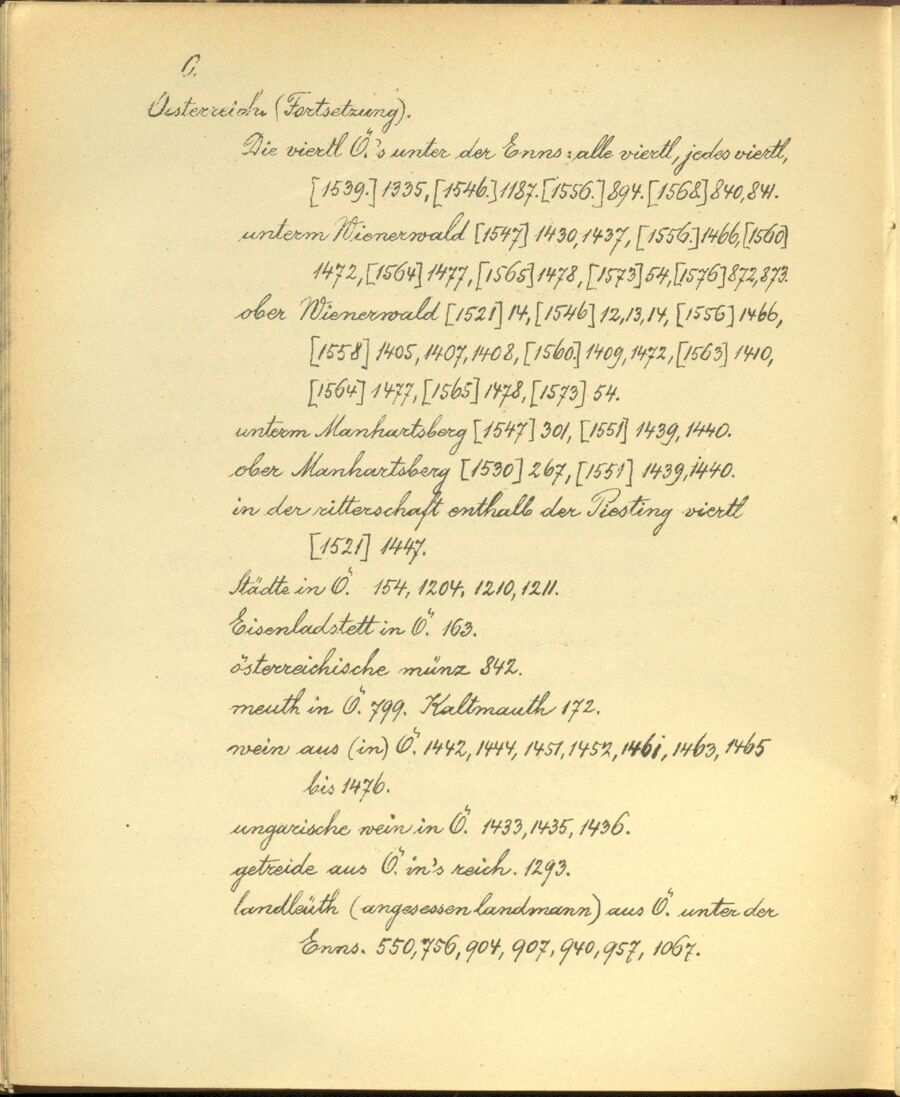 O.
Oesterreich (Fortsetzung).
Die viertl Ö.'s unter der Enns: alle viertl, jedes viertl,
[1539.] 1335, [1546.] 1187. [1556.] 894. [1568] 840, 841.
unterm Wienerwald [1547] 1430, 1437, [1556.] 1466, [1560]
1472, [1564] 1477, [1565] 1478, [1573] 54, [1576] 872, 873.
ober Wienerwald [1521] 14, [1546] 12, 13, 14, [1556] 1466,
[1558] 1405, 1407, 1408, [1560.] 1409, 1472, [1563] 1410,
[1564] 1477, [1565] 1478, [1573] 54.
unterm Manhartsberg [1547] 301, [1551] 1439, 1440.
ober Manhartsberg [1530] 267, [1551] 1439, 1440.
in der ritterschaft enthalb der Piesting viertl
[1521] 1447.
Städte in Ö. 154, 1204, 1210, 1211.
Eisenladstett in Ö. 163.
österreichische münz 842.
meuth in Ö. 799. Kaltmauth 172.
wein aus (in) Ö. 1442, 1444, 1451, 1452, 1461, 1463, 1465
bis 1476.
ungarische wein in Ö. 1433, 1435, 1436.
getreide aus Ö. in's reich. 1293.
landleüth (angesessen landmann) aus Ö. unter der
Enns. 550, 756, 904, 907, 940, 957, 1067.